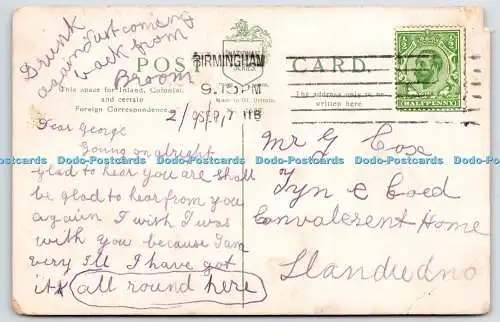 Drunk
again Just coming
back from
Broom
POST CARD.
NATIONAL
SERIES
Made in Gt. Britain
BIRMINGHAM
9.15PM
This space for Inland, Colonial,
and certain
Foreign Correspondence.
The address only to be
written here.
HALFPENNY
Dear George
Going on alright
glad to hear you are shall
be glad to hear from you
again I wish I was
with you because I am
very Ill I have got
it all round here
Mr G Cox
Tyn e Coed
Convalesent Home
Llandudno
Dodo-Postcards Dodo-Postcards Dodo-Postcards Dodo-Postcards